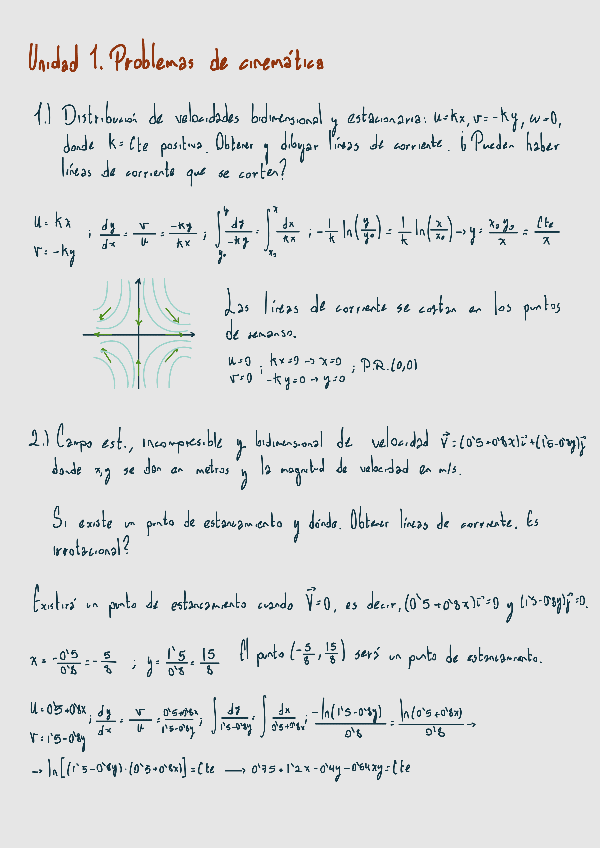 Unidad 1. Problemas de cinemática
1.) Distribución de velocidades bidimensional y estacionaria: u=kx, v=-ky, w=0,
donde k=Cte positiva. Obtener y dibujar líneas de corriente. ¿Pueden haber
líneas de corriente que se corten?
u=kx
v=-ky ; dy/dx = v/u = -ky/kx ; ∫_{y₀}^{y} dy/-ky = ∫_{x₀}^{x} dx/kx ; -1/k ln(y/y₀) = 1/k ln(x/x₀) → y = x₀y₀/x = Cte/x
Las líneas de corriente se cortan en los puntos
de remanso.
u=0 ; kx=0 → x=0 ; P.R.(0,0)
v=0 -ky=0 → y=0
2.) Campo est., incompresible y bidimensional de velocidad V⃗=(0'5+0'8x)i⃗+(1'5-0'8y)j⃗
donde x,y se dan en metros y la magnitud de velocidad en m/s.
Si existe un punto de estancamiento y dónde. Obtener líneas de corriente. Es
irrotacional?
Existirá un punto de estancamiento cuando V⃗=0, es decir, (0'5+0'8x)i⃗=0 y (1'5-0'8y)j⃗=0.
x = -0'5/0'8 = -5/8 ; y = 1'5/0'8 = 15/8 El punto (-5/8, 15/8) será un punto de estancamiento.
u=0'5+0'8x
v=1'5-0'8y ; dy/dx = v/u = 0'5+0'8x/1'5-0'8y ; ∫ dy/1'5-0'8y = ∫ dx/0'5+0'8x ; -ln(1'5-0'8y)/0'8 = ln(0'5+0'8x)/0'8 →
→ ln[(1'5-0'8y)·(0'5+0'8x)] = Cte → 0'75+1'2x-0'4y-0'64xy=Cte